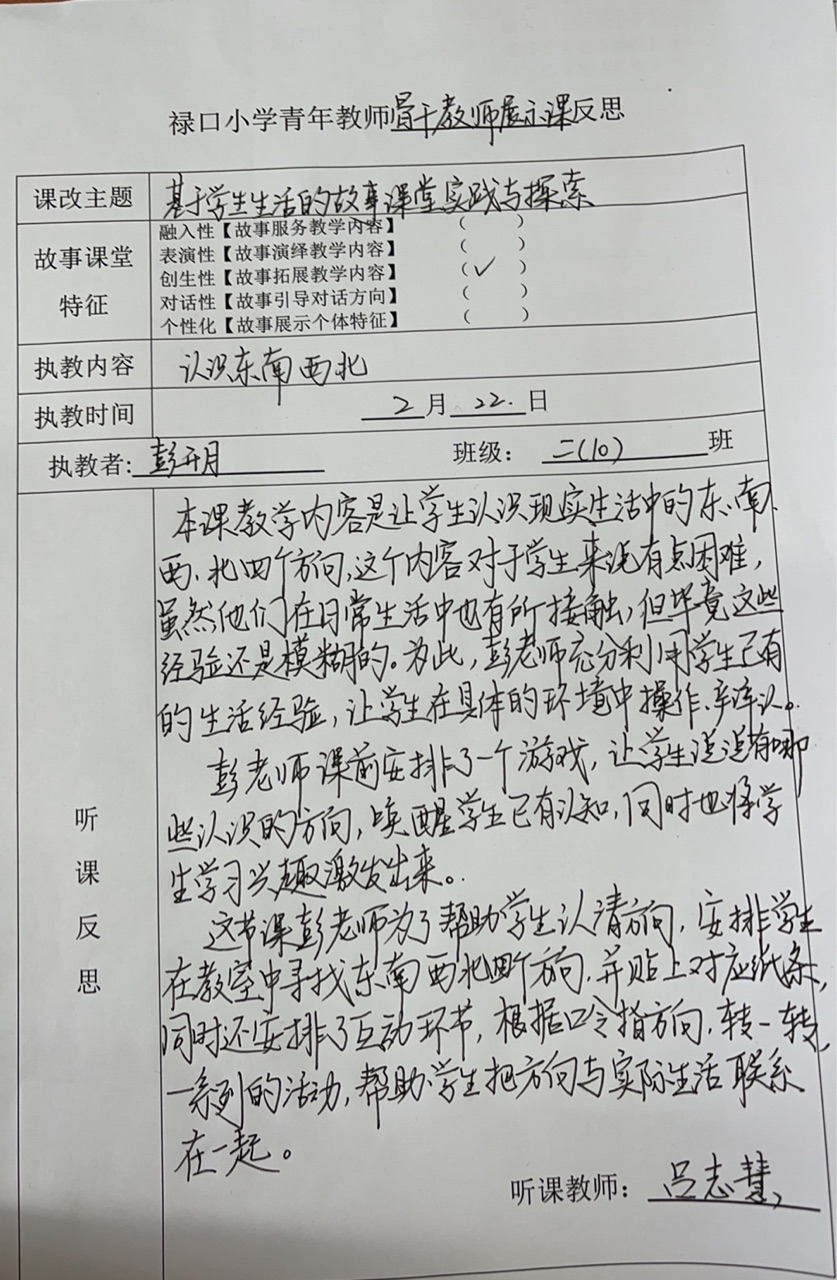 禄口小学青年教师骨干教师展示课反思
课改主题 基于学生生活的故事课堂实践与探索
故事课堂特征
融入性【故事服务教学内容】 （ ）
表演性【故事演绎教学内容】 （ ）
创生性【故事拓展教学内容】 （✓）
对话性【故事引导对话方向】 （ ）
个性化【故事展示个体特征】 （ ）
执教内容 认识东南西北
执教时间 2月22.日
执教者：彭开月 班级：二（10）班
听课反思
本课教学内容是让学生认识现实生活中的东、南、
西、北四个方向，这个内容对于学生来说有点困难，
虽然他们在日常生活中也有所接触，但毕竟这些
经验还是模糊的。为此，彭老师充分利用学生已有
的生活经验，让学生在具体的环境中操作、辨认。
彭老师课前安排了一个游戏，让学生说说有哪
些认识的方向，唤醒学生已有认知，同时也将学
生学习兴趣激发出来。
这节课彭老师为了帮助学生认清方向，安排学生
在教室中寻找东南西北四个方向，并贴上对应纸条，
同时还安排了互动环节，根据口令指方向，转一转，
一系列的活动，帮助学生把方向与实际生活联系
在一起。
听课教师：吕志慧